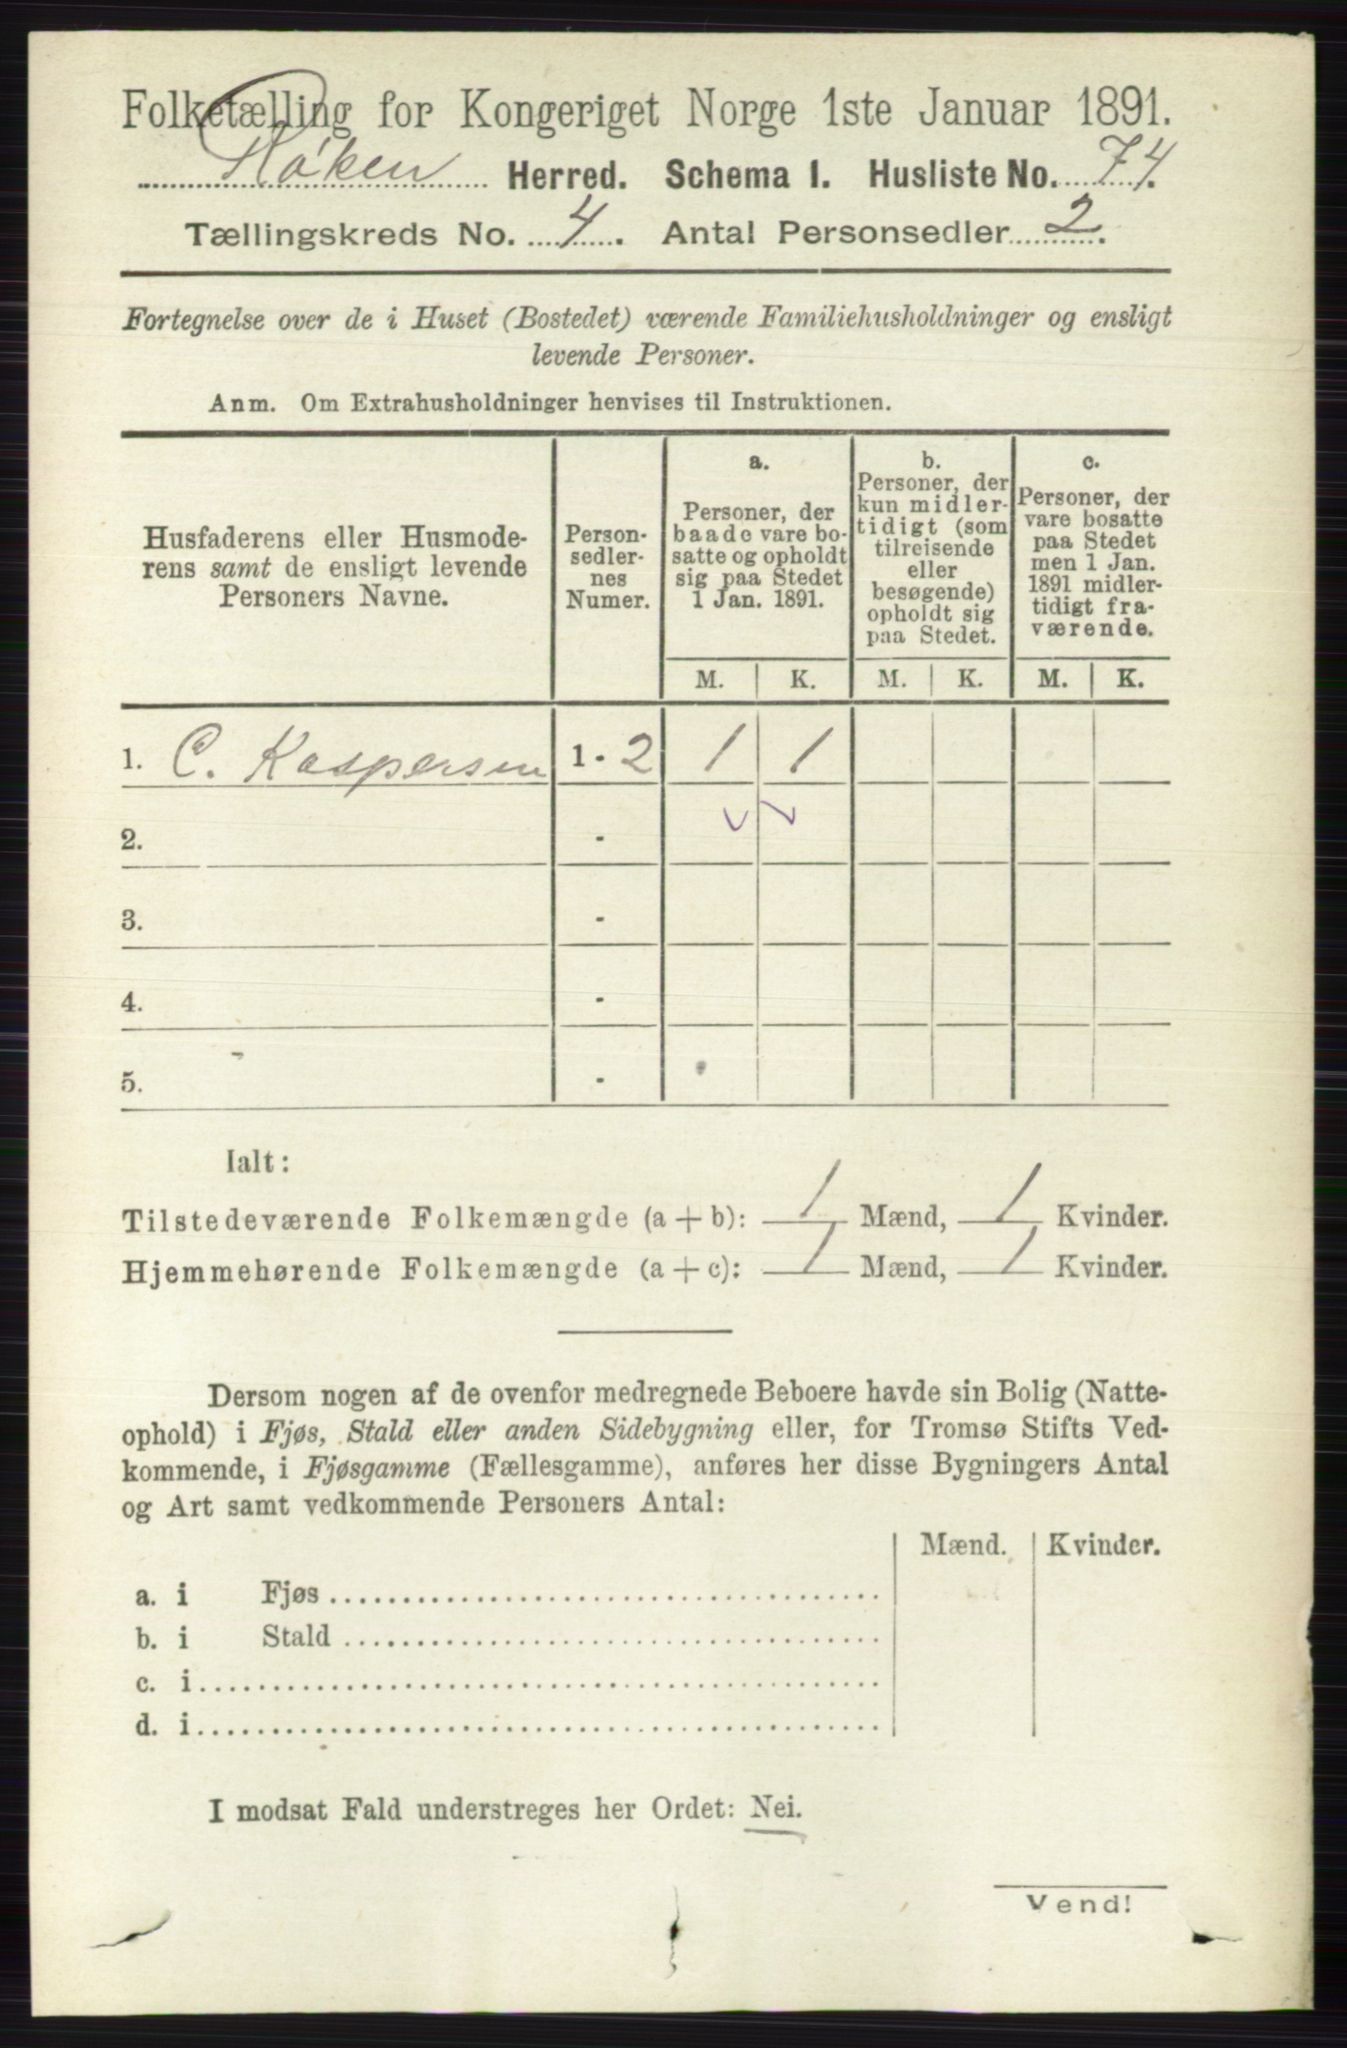 Folketælling for Kongeriget Norge 1ste Januar 1891.
Røken Herred. Schema 1. Husliste No. 74.
Tællingskreds No. 4. Antal Personsedler 2.
Fortegnelse over de i Huset (Bostedet) værende Familiehusholdninger og ensligt
levende Personer.
Anm. Om Extrahusholdninger henvises til Instruktionen.
Husfaderens eller Husmode-
rens samt de ensligt levende
Personers Navne.
Person-
sedler-
nes
Numer.
a.
Personer, der
baade vare bo-
satte og opholdt
sig paa Stedet
1 Jan. 1891.
b.
Personer, der
kun midler-
tidigt (som
tilreisende
eller
besøgende)
opholdt sig
paa Stedet.
c.
Personer, der
vare bosatte
paa Stedet
men 1 Jan.
1891 midler-
tidigt fra-
værende.
M. K. M. K. M. K.
1. C. Kaspersen 1 - 2 1 1
2. -
3. -
4. -
5. -
Ialt:
Tilstedeværende Folkemængde (a + b): 1 Mænd, 1 Kvinder.
Hjemmehørende Folkemængde (a + c): 1 Mænd, 1 Kvinder.
Dersom nogen af de ovenfor medregnede Beboere havde sin Bolig (Natte-
ophold) i Fjøs, Stald eller anden Sidebygning eller, for Tromsø Stifts Ved-
kommende, i Fjøsgamme (Fællesgamme), anføres her disse Bygningers Antal
og Art samt vedkommende Personers Antal:
Mænd. Kvinder.
a. i Fjøs
b. i Stald
c. i
d. i
I modsat Fald understreges her Ordet: Nei.
Vend!